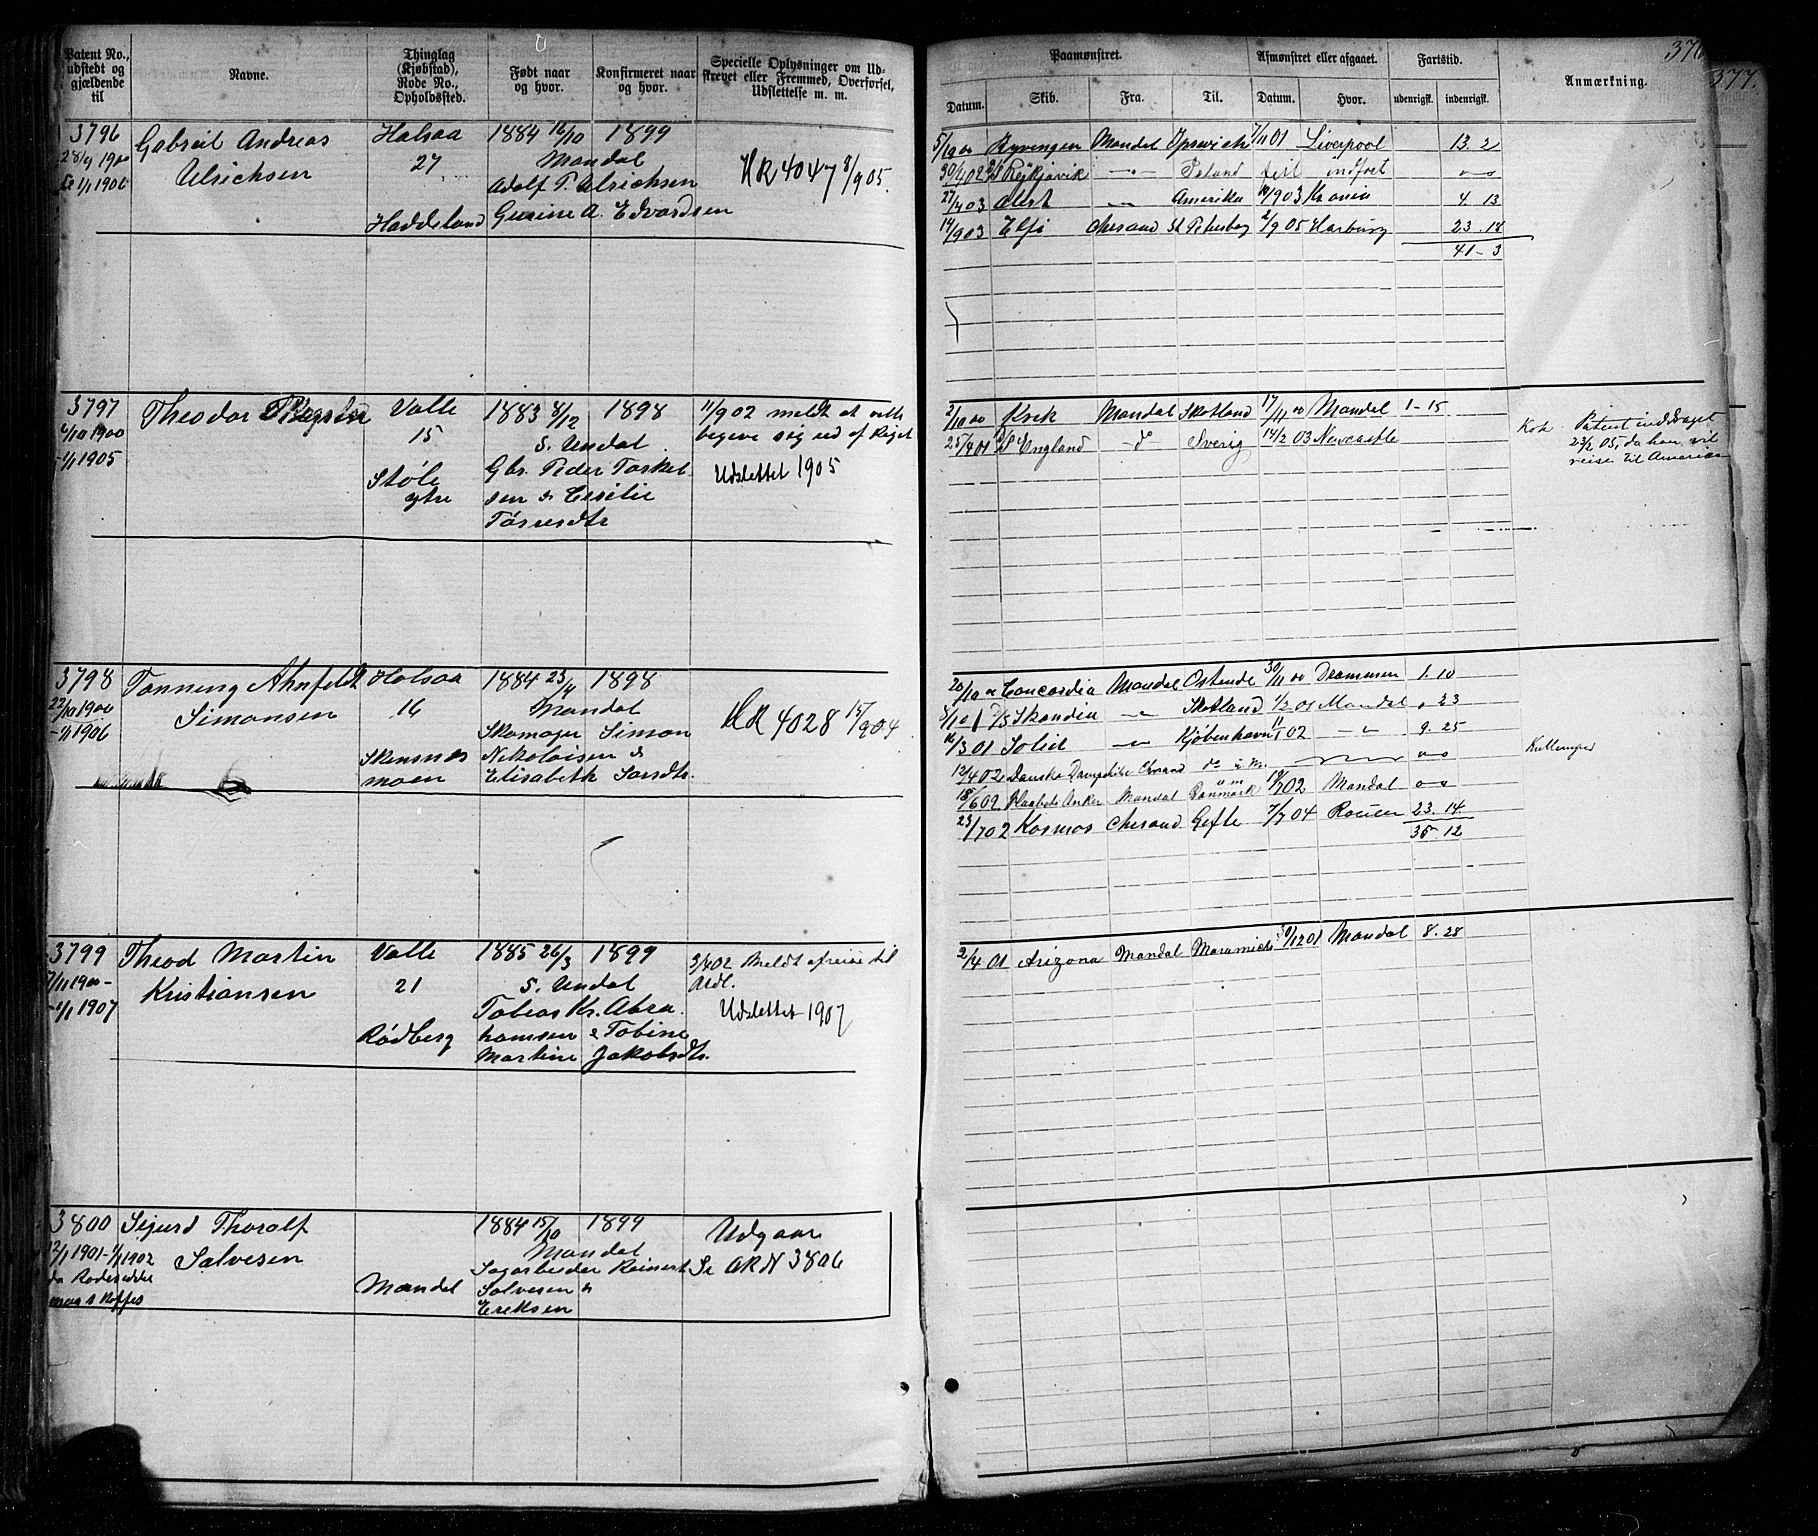 Patent No., udstedt og gjældende til
Navne.
Thinglag (Kjøbstad), Rode No., Opholdssted.
Født naar og hvor.
Konfirmeret naar og hvor.
Specielle Oplysninger om Udskrevet eller Fremmed, Overførsel, Udslettelse m. m.
Paamønstret.
Datum.
Skib.
Fra.
Til.
Afmønstret eller afgaaet.
Datum.
Hvor.
Fartstid.
udenrigsk.
indenrigsk.
Anmærkning.
377.
3796
28/9 1900
1/1 1906
Gabriel Andreas
Ulrichsen
Halsaa
27
Haddeland
1884 16/10 1899
Mandal
Adolf T. Ulrichsen
Gurine A. Edvardsen
HR 4047 8/905.
Ryvingen Mandal Ipswich 7/1 01 Liverpool 13. 2
30/4 02 D/S Rejkjavik —"— Island feil indført
27/403 Alert —"— Amerika 903 Kronin 4. 13
14/903 Elfi Chrsand St Petersborg 2/9 05 Harburg 23. 18
41 - 3
3797
4/10 1900
-1/1 1905
Theodor
Valle
15
Støle
ytre
1883 8/12 1898
S. Undal
Gbr. Peder Torkel-
sen & Cecilie
Tørresdtr
11/9 02 meldt at ville
begive sig ud af Riget
Udslettet 1905
2/10 00 Kvik Mandal Skotland 17/11 00 Mandal 1-15
25/4 01 D/S England — do Sverig 14/2 03 Newcastle
Kok
Patent inddraget
23/2 05, da han vil
reise til Amerika
3798
22/10 1900
-1/1 1906
Tønning Ahnfeldt
Simonsen
Halsaa
16
Skinsnes
moen
1884 23/4 1898
Mandal
Skomager Simon
Nikolaisen &
Elisabeth Larsdtr.
HR 4028 15/904
20/10 00 Concordia Mandal Ostende 30/11 00 Drammen 1. 10
D/S Skandia —"— Skotland 1/2 01 Mandal . 23
16/3 01 Solid —"— Kjøbenhavn 11/1 02 —"— 9. 25
12/4 02 Danske Dampskibe Chrsand
Kullemper
18/6 02 Haabets Anker Mandal Danmark 19/7 02 Mandal
23/7 02 Kosmos Chrsand Gefle 7/7 04 Rouen 23. 14.
35. 12
3799
7/11 1900 -
-1/1 1907
Theod Martin
Kristiansen
Valle
21
Rødberg
1885 26/3 1899
S. Undal
Tobias Kr. Abra
hamsen & Tobine
Martine Jakobsdtr.
3/4 02 Meldt afreise til
Ardl.
Udslettet 1907
2/4 01 Arizona Mandal Miramichi 9/12 01 Mandal 8. 28
3800
12/1 1901 - 1/1 1902
Sigurd Thoralf
Salvesen
Mandal
1884 15/10 1899
Mandal
Sagarbeider Reinert
Salvesen &
Eriksen
Udgaar
Se ARN 3806